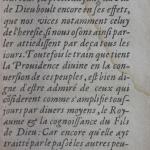 de Dieu boult encore en ses effets,
que nos vices notamment celuy
de l'heresie, si nous osons ainsi par-
ler attiedissent par deça tous les
iours. Toutefois le train que tient
la Prouidence diuine en la con-
uersion de ces peuples, est bien di-
gne d'estre admiré de ceux qui
cõsiderent comme s'amplifie tous-
jours par diuers moyens, le Roy-
aume & la cognoissance du Fils
de Dieu: Car encore qu'elle ayt
traitté par le passé les autres peu-